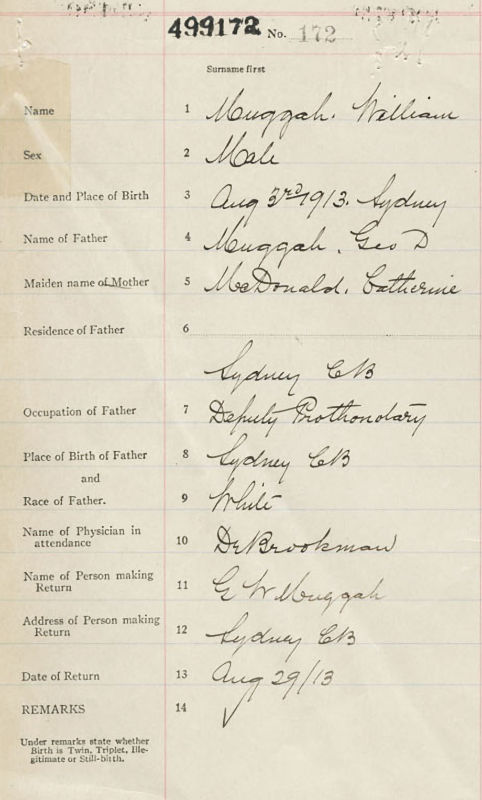 499172 No. 172
Surname first
Name 1 Muggah. William
Sex 2 Male
Date and Place of Birth 3 Aug 3rd 1913. Sydney
Name of Father 4 Muggah, Geo D
Maiden name of Mother 5 McDonald. Catherine
Residence of Father 6
Sydney CB
Occupation of Father 7 Deputy Prothonotary
Place of Birth of Father 8 Sydney CB
and
Race of Father. 9 White
Name of Physician in
attendance 10 Dr Brookman
Name of Person making
Return 11 G W Muggah
Address of Person making
Return 12 Sydney CB
Date of Return 13 Aug 29/13
REMARKS 14
Under remarks state whether
Birth is Twin, Triplet, Ille-
gitimate or Still-birth.